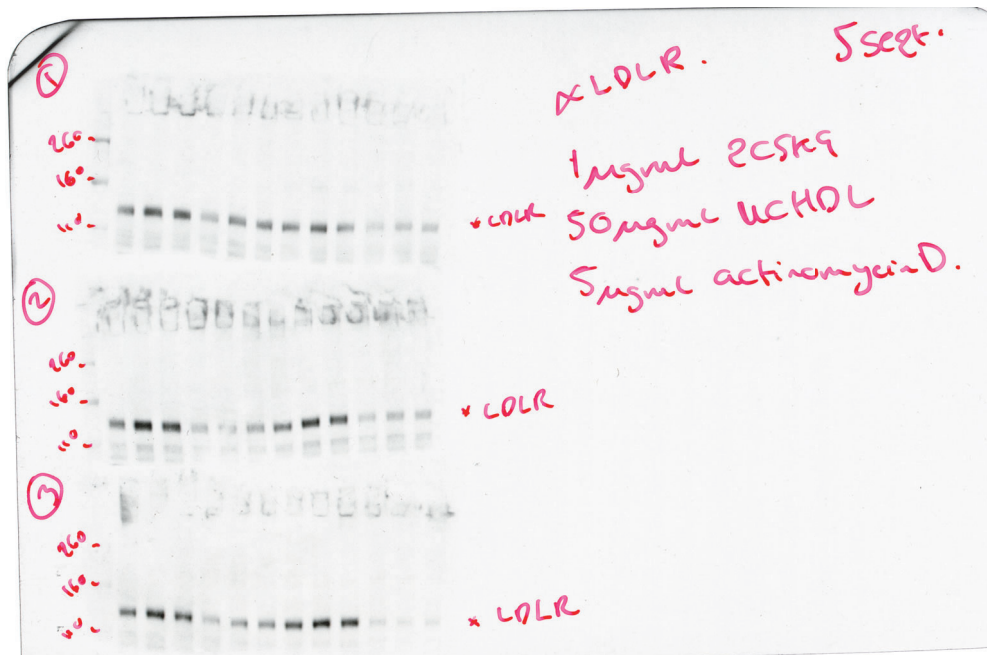 ①
5 sept.
αLDLR.
260-
160-
110-
*LDLR
1μgml PCSK9
50μgml UCHDL
5μgml actinomycin D.
②
260-
160-
110-
* LDLR
③
260-
160-
110-
* LDLR